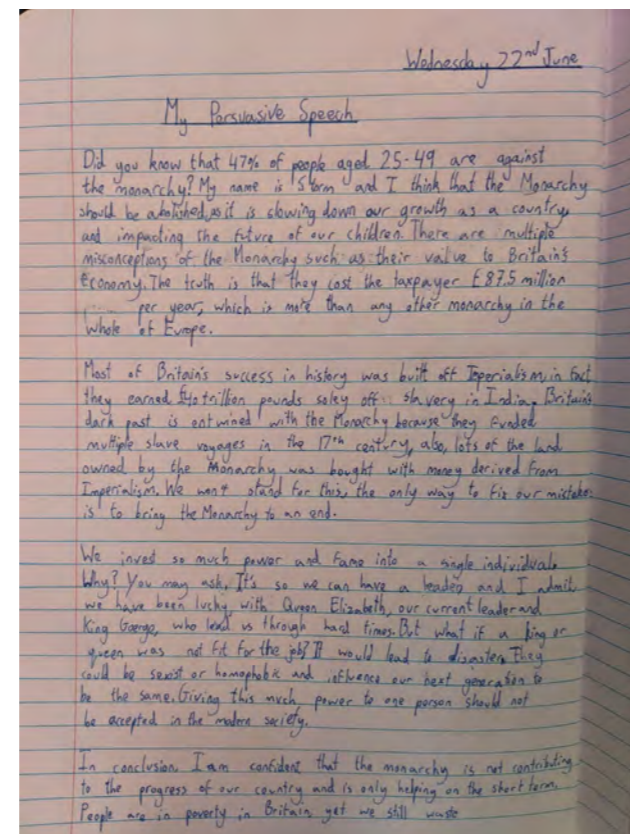 Wednesday 22nd June
My Persuasive Speech
Did you know that 47% of people aged 25-49 are against
the monarchy? My name is Storm and I think that the Monarchy
should be abolished, as it is slowing down our growth as a country,
and impacting the future of our children. There are multiple
misconceptions of the Monarchy such as their value to Britain's
Economy. The truth is that they cost the taxpayer £87.5 million
per year, which is more than any other monarchy in the
whole of Europe.
Most of Britain's success in history was built off Imperialism, in fact
they earned trillion pounds soley off slavery in India. Britain's
dark past is entwined with the Monarchy because they funded
multiple slave voyages in the 17th century, also, lots of the land
owned by the Monarchy was bought with money derived from
Imperialism. We won't stand for this, the only way to fix our mistake
is to bring the Monarchy to an end.
We invest so much power and fame into a single individual.
Why? You may ask. It's so we can have a leader, and I admit,
we have been lucky with Queen Elizabeth, our current leader and
King who us through hard times. But what if a king or
queen was not fit for the job? It would lead to disaster. They
could be sexist or homophobic and influence our next generation to
be the same. Giving this much power to one person should not
be accepted in the modern society.
In conclusion, I am confident that the monarchy is not contributing
to the progress of our country and is only helping on the short term.
People are in poverty in Britain, yet we still waste